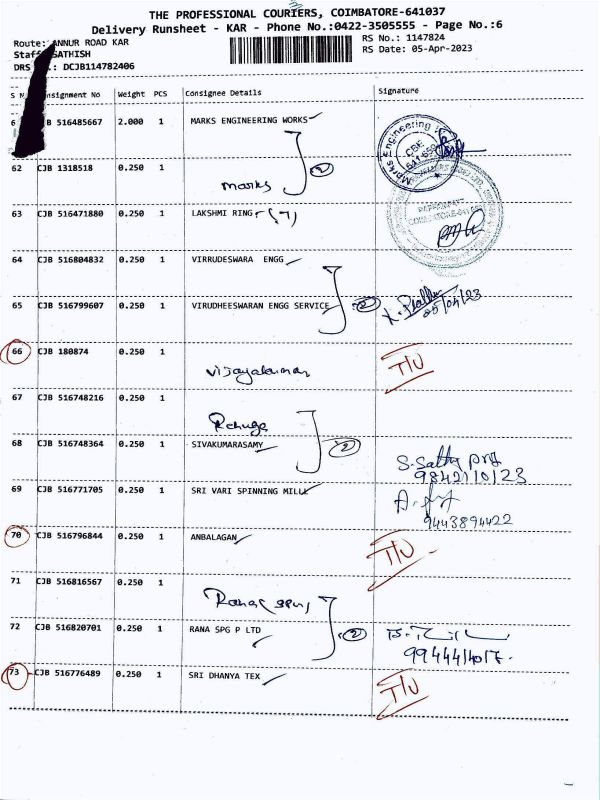 THE PROFESSIONAL COURIERS, COIMBATORE-641037
Delivery Runsheet - KAR - Phone No.:0422-3505555 - Page No.:6
Route: ANNUR ROAD KAR
RS No.: 1147824
Staff: SATHISH
RS Date: 05-Apr-2023
DRS No.: DCJB114782406
S N Consignment No Weight PCS Consignee Details Signature
6 CJB 516485667 2.000 1 MARKS ENGINEERING WORKS
62 CJB 1318518 0.250 1 marks 2
63 CJB 516471880 0.250 1 LAKSHMI RING (7)
64 CJB 516804832 0.250 1 VIRRUDESWARA ENGG
65 CJB 516799607 0.250 1 VIRUDHEESWARAN ENGG SERVICE 2 05/04/23
66 CJB 180874 0.250 1 Vijayakumar T/U
67 CJB 516748216 0.250 1
68 CJB 516748364 0.250 1 SIVAKUMARASAMY 2 S. Sathy
9842110123
69 CJB 516771705 0.250 1 SRI VARI SPINNING MILL
9443894422
70 CJB 516796844 0.250 1 ANBALAGAN T/U
71 CJB 516816567 0.250 1 Rana
72 CJB 516820701 0.250 1 RANA SPG P LTD 2
9944414017.
73 CJB 516776489 0.250 1 SRI DHANYA TEX T/U